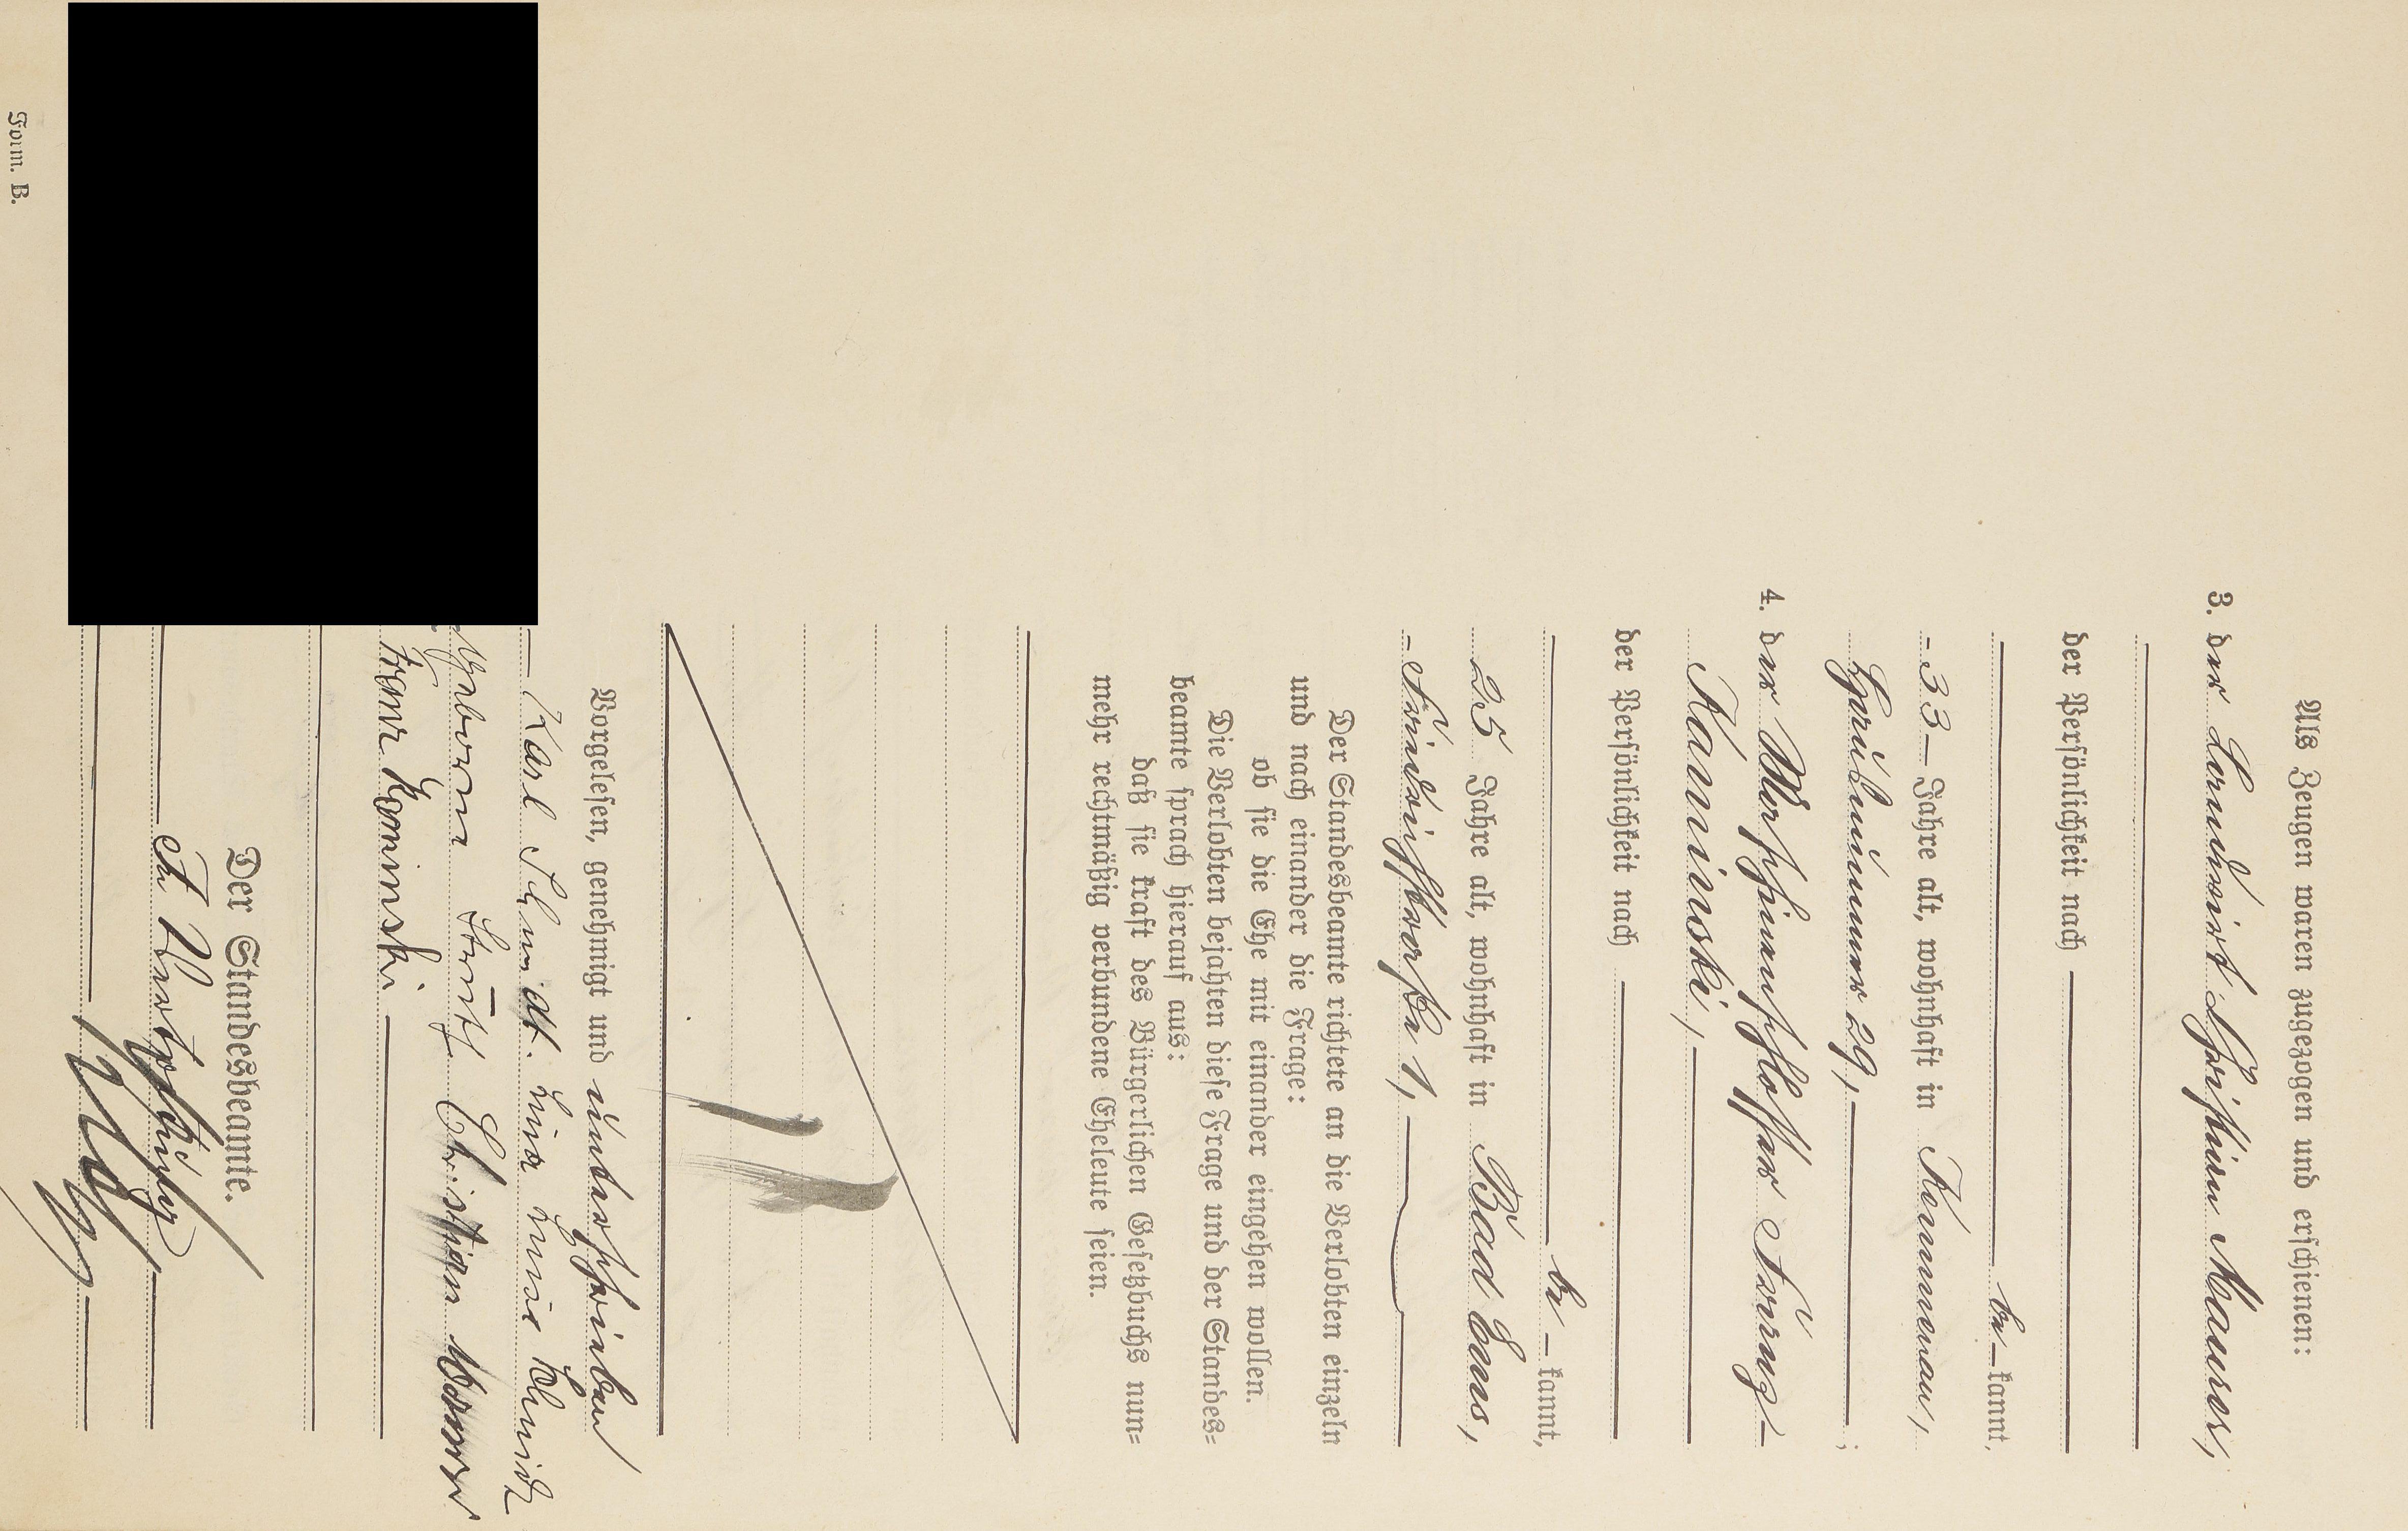 Als Zeugen waren zugezogen und erschienen:
3. der Landwirt Christian Maurer,
der Persönlichkeit nach
be – kannt,
- 33 – Jahre alt, wohnhaft in Kemmenau,
Hausnummer 29, ;
4. der Maschinenschlosser Franz
Kaminski,
der Persönlichkeit nach
be – kannt,
25 Jahre alt, wohnhaft in Bad Ems,
1,
Der Standesbeamte richtete an die Verlobten einzeln
und nach einander die Frage:
ob sie die Ehe mit einander eingehen wollen.
Die Verlobten bejahten diese Frage und der Standes=
beamte sprach hierauf aus:
daß sie kraft des Bürgerlichen Gesetzbuchs nun=
mehr rechtmäßig verbundene Eheleute seien.
Vorgelesen, genehmigt und unterschrieben
Karl Schmidt. Lina Luise Schmidt
geborene Christian Maurer
Franz Kaminski
Der Standesbeamte.
In Vertretung
Form. B.